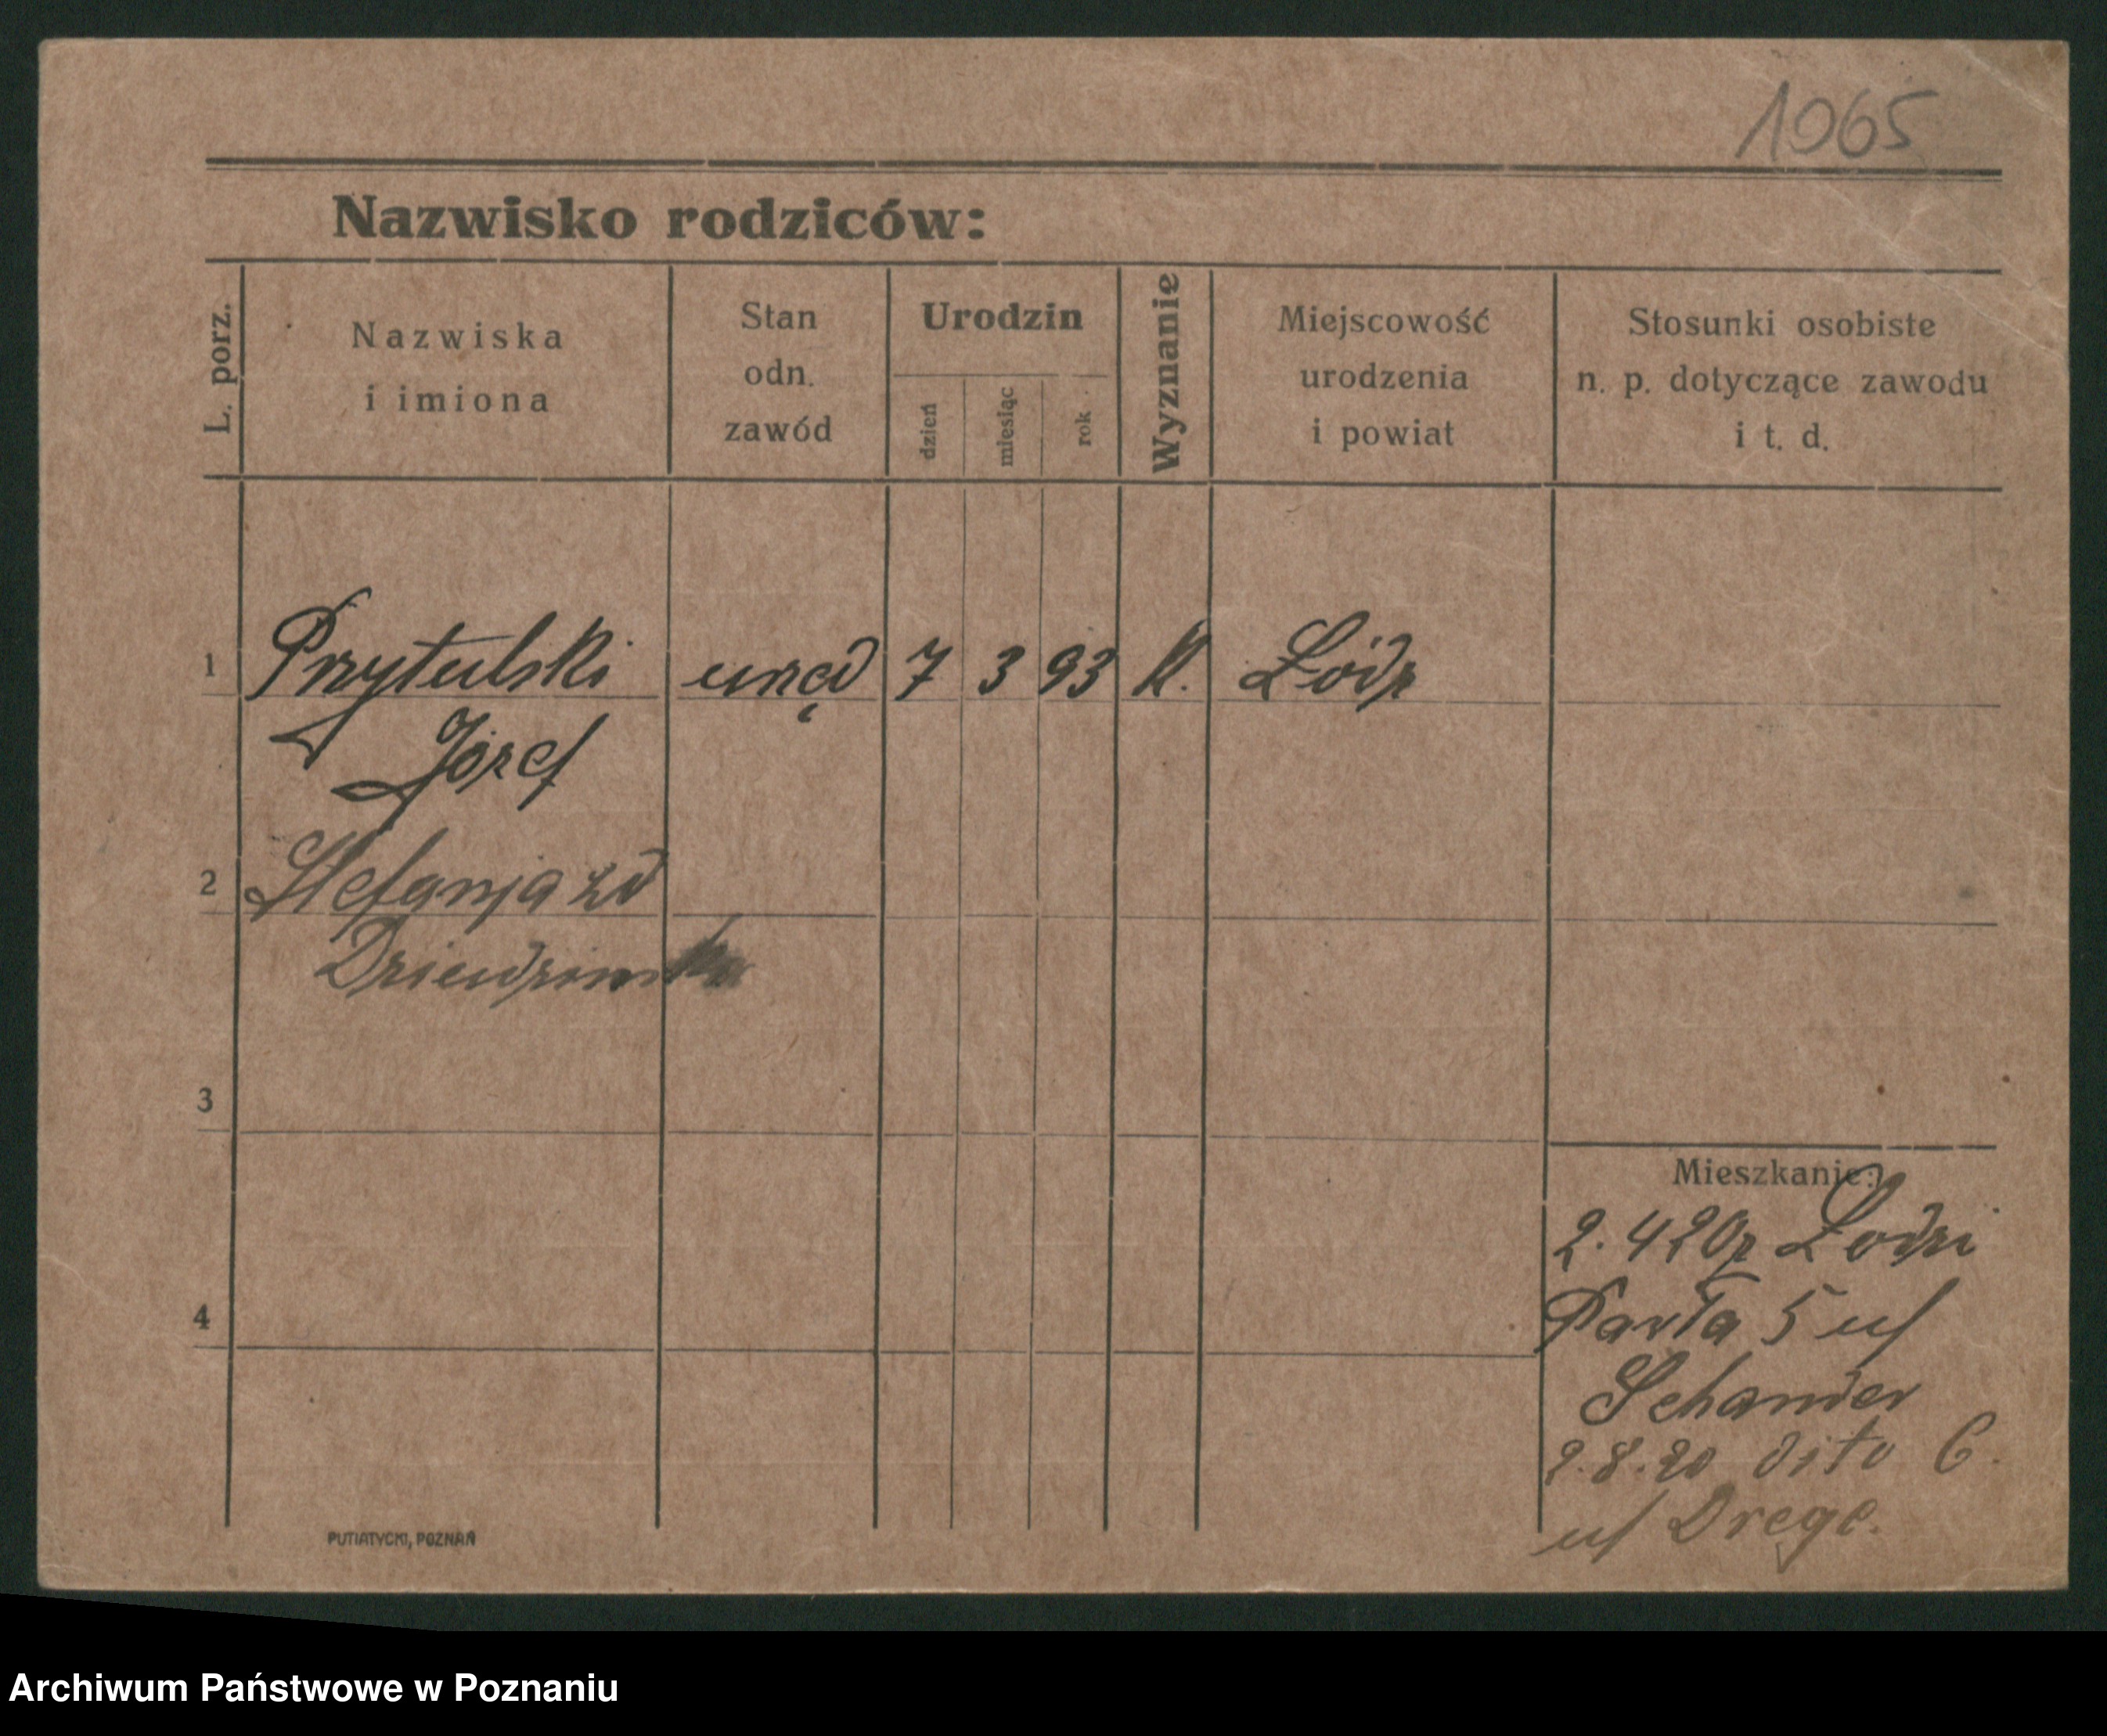 1065
Nazwisko rodziców:
L. porz.
Nazwiska
i imiona
Stan
odn.
zawód
Urodzin
dzień
miesiąc
rok
Wyznanie
Miejscowość
urodzenia
i powiat
Stosunki osobiste
n. p. dotyczące zawodu
i t. d.
1 Przytulski urzęd 7 3 93 k. Łódz
Józef
2 Stefanja zd
3
Mieszkanie:
2.4 20 z Łodzi
4
Pawła 5 u/
Schander
2.8.20 dito 6.
u/ Drege.
PUTIATYCKI, POZNAŃ
Archiwum Państwowe w Poznaniu